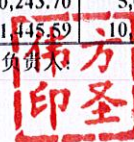 0,243.70
1,445.59 10,
负责人:
方圣
伟印